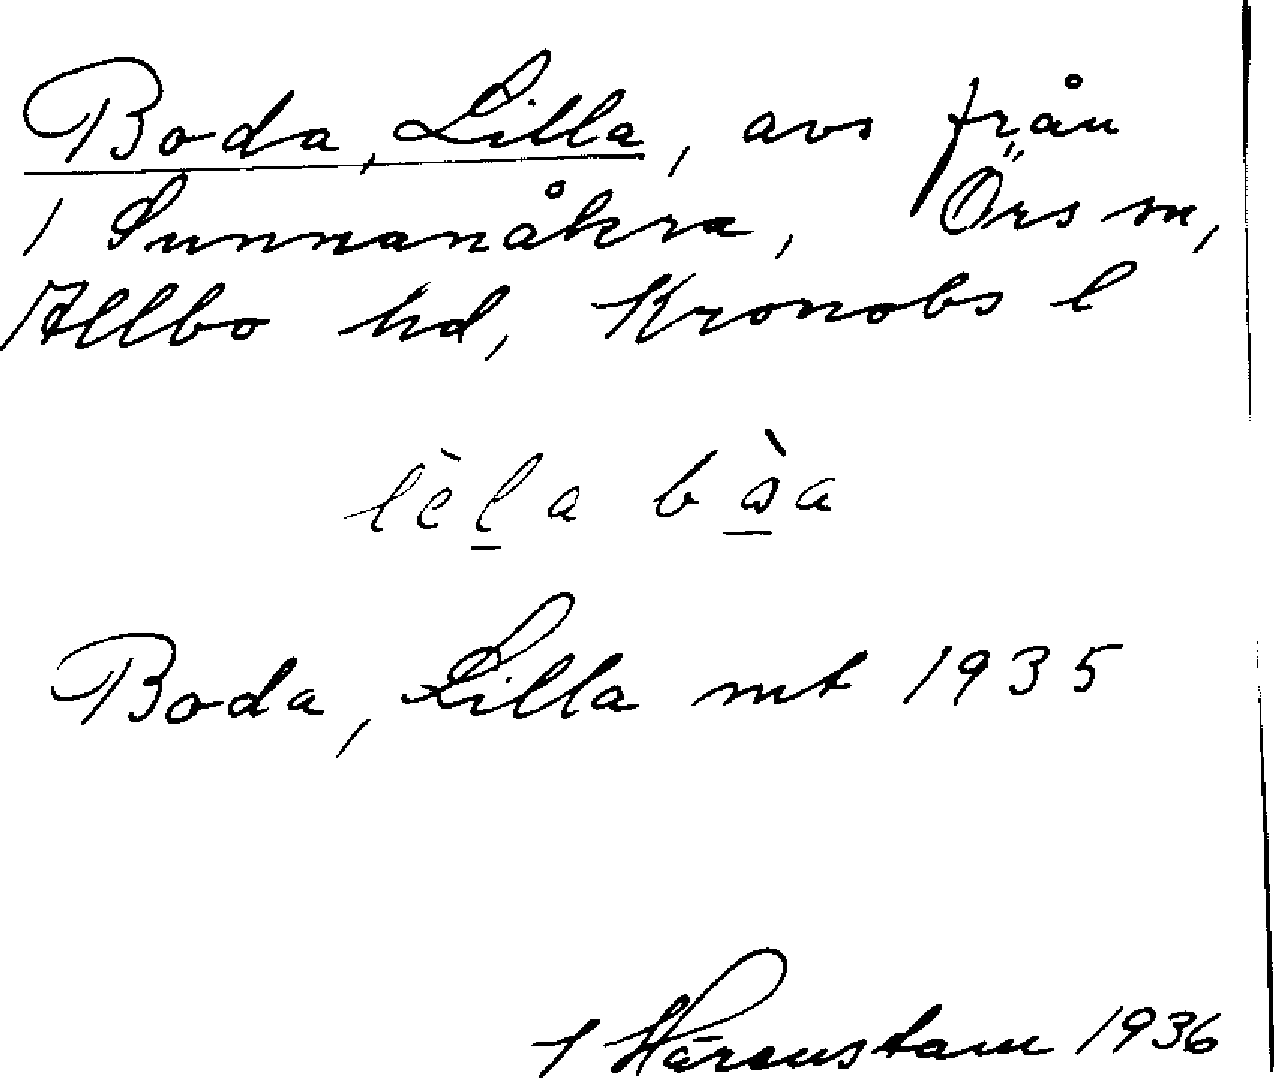 Boda, Lilla, avs från
1 Sunnanåkra, Örs sn,
Allbo hd, Kronobs l
lèla bòa
Boda, Lilla mt 1935
1936